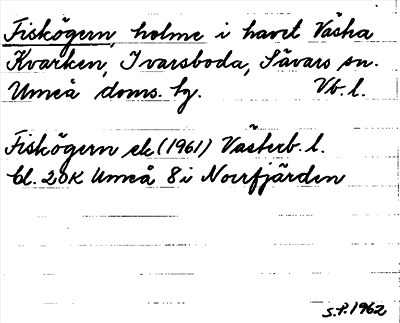 Fiskögern, holme i havet Västra
Kvarken, Ivarsboda, Sävars sn.
Umeå doms. hg. Vb. l.
Fiskögern ek (1961) Västerb. l.
bl. 20K Umeå 8 i Norrfjärden
S.P. 1962